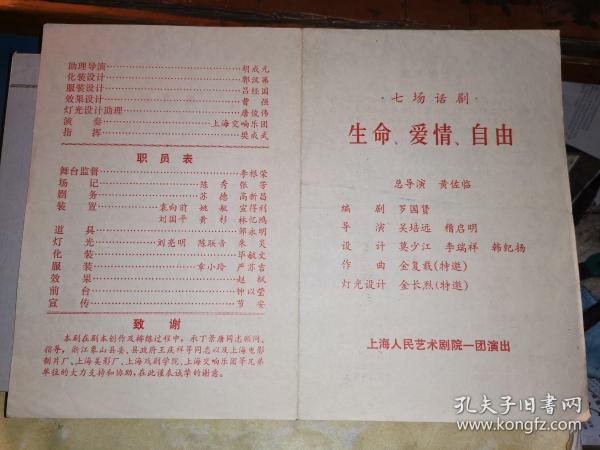 助理导演 胡成元
化装设计 郭汉英
服装设计 吕经国
效果设计 曹强
灯光设计助理 唐俊伟
演奏 上海交响乐团
指挥 樊成武
职员表
舞台监督 李根荣
场记 陈秀 张芳
剧务 苏德 高新昌
装置 袁向前 姚敏 宣得利
刘国平 黄杉 林忆鸿
道具 邹永明
灯光 刘亮明 陈联音 朱炎
化装 毕毓文
服装 章小玲 严苏吉
效果 赵枫
前台 钟以莹
宣传 节安
致谢
本剧在剧本创作及排练过程中，承丁景唐同志顾问、
指导，浙江象山县委、县政府王庆祥等同志以及上海电影
制片厂、上海美影厂、上海戏剧学院、上海交响乐团等兄弟
单位的大力支持和协助，在此谨表诚挚的谢意。
·七场话剧·
生命、爱情、自由
总导演 黄佐临
编剧 罗国贤
导演 吴培远 稽启明
设计 莫少江 李瑞祥 韩纪扬
作曲 金复载(特邀)
灯光设计 金长烈(特邀)
上海人民艺术剧院一团演出
孔夫子旧书网
www.kongfz.com